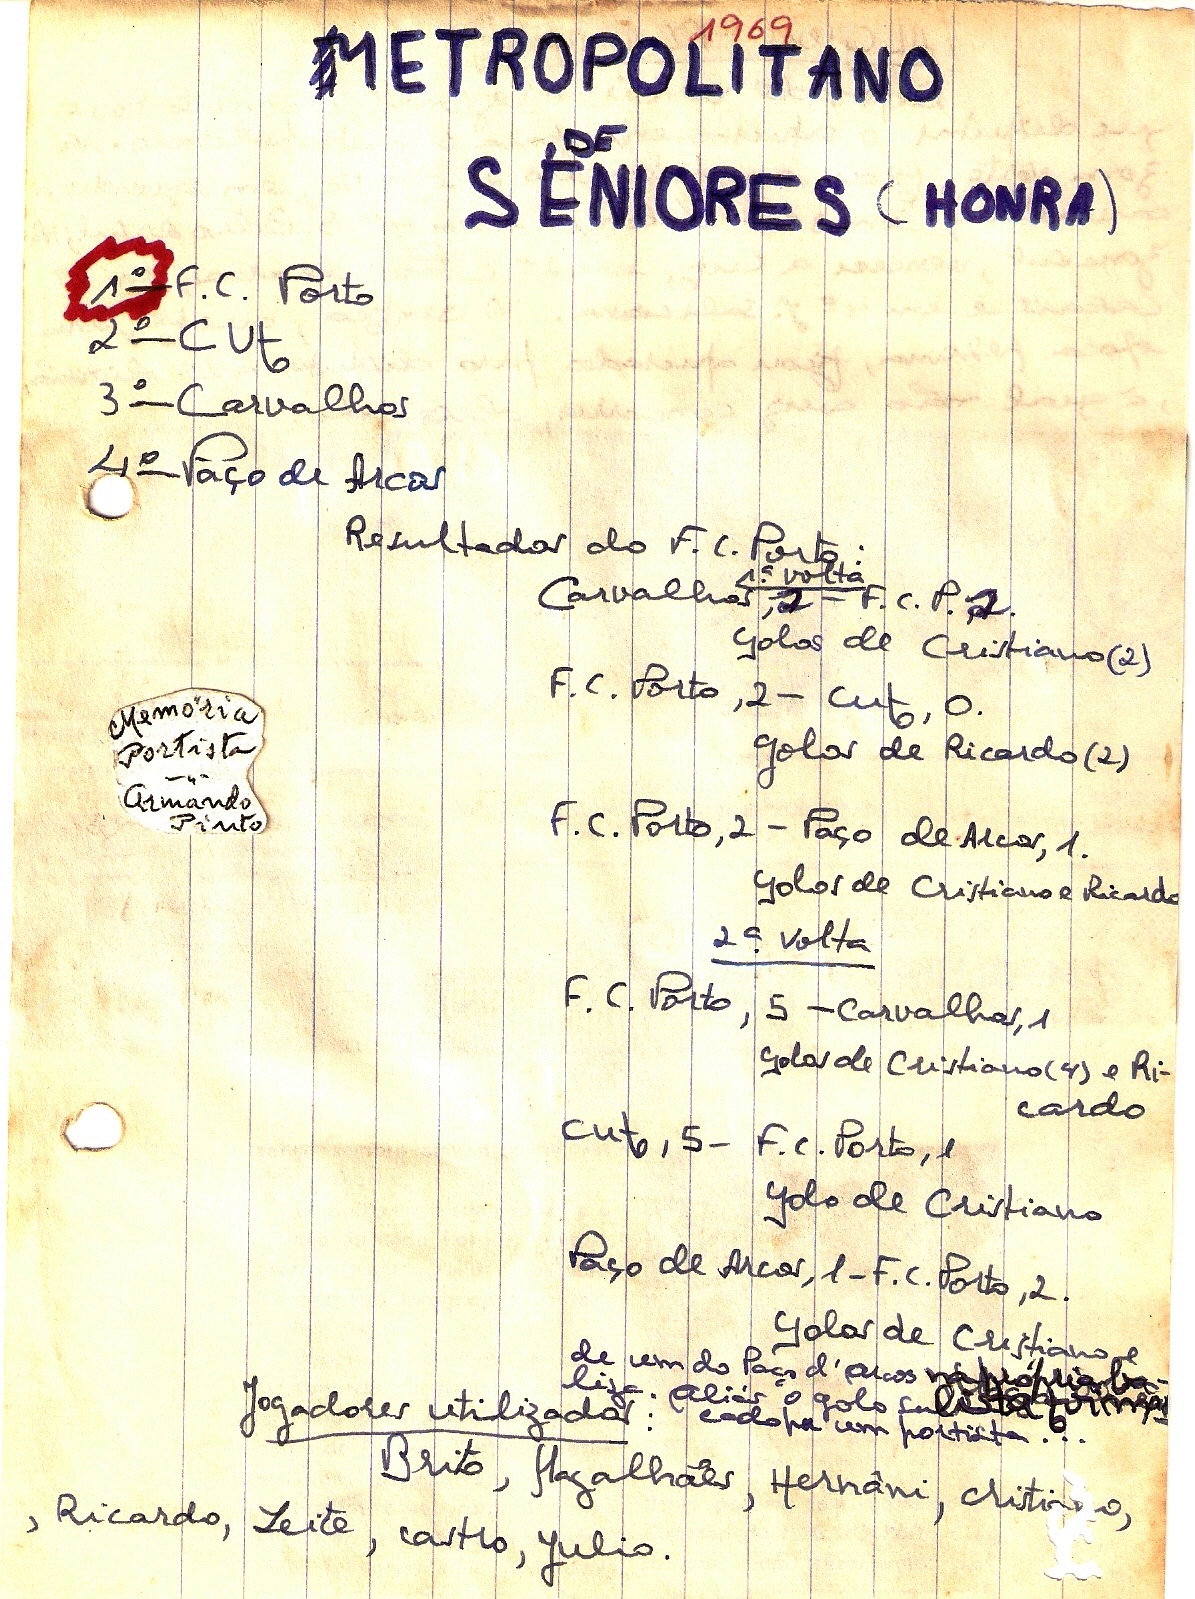 1969
METROPOLITANO
DE
SENIORES (HONRA)
1º - F.C. Porto
2º - CUf
3º - Carvalhos
4º - Paço de Arcos
Resultados do F.C. Porto:
1ª volta
Carvalhos, 2 - F.C.P. 2.
golos de Cristiano (2)
F.C. Porto, 2 - Cuf, 0.
golos de Ricardo (2)
Memória
Portista
-"-
Armando
Pinto
F.C. Porto, 2 - Paço de Arcos, 1.
golos de Cristiano e Ricardo
2ª volta
F.C. Porto, 5 - Carvalhos, 1
golos de Cristiano (4) e Ri-
cardo
Cuf, 5 - F.C. Porto, 1
golo de Cristiano
Paço de Arcos, 1 - F.C. Porto, 2.
golos de Cristiano e
de um do Paço d'Arcos na própria ba-
liza. Aliás o golo
um portista...
Jogadores utilizados:
Brito, Magalhães, Hernâni, Cristiano,
, Ricardo, Leite, Castro, Julio.